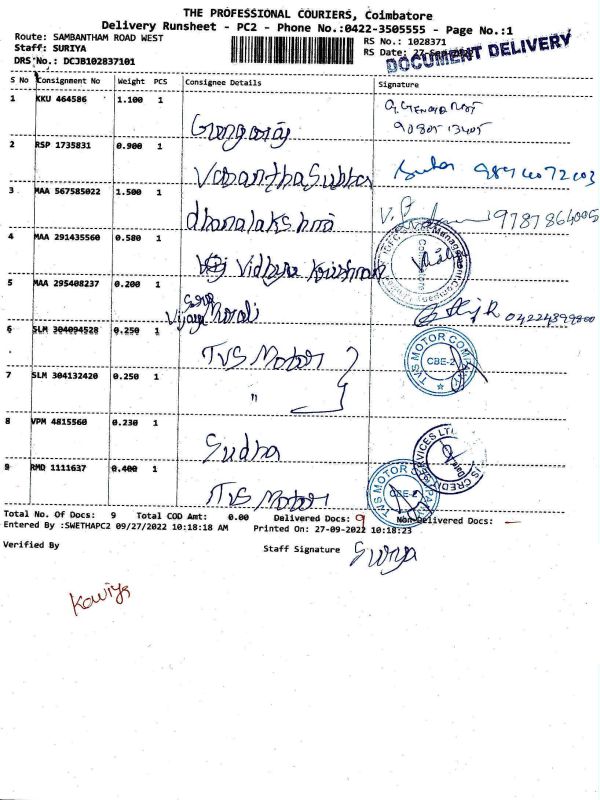 THE PROFESSIONAL COURIERS, Coimbatore
Delivery Runsheet - PC2 - Phone No.:0422-3505555 - Page No.:1
Route: SAMBANTHAM ROAD WEST
RS No.: 1028371
Staff: SURIYA
RS Date: 27-Sep
DOCUMENT DELIVERY
DRS No.: DCJB102837101
S No Consignment No Weight PCS Consignee Details Signature
1 KKU 464586 1.100 1
2 RSP 1735831 0.900 1
3 MAA 567585022 1.500 1
dhanalakshmi 9787864005
4 MAA 291435560 0.580 1
Vidhya Krishnan
5 MAA 295408237 0.200 1
Vijaya Murali
04224899800
6 SLM 304094528 0.250 1
TVS Motor
TVS MOTOR COMPANY CBE-2
7 SLM 304132420 0.250 1
"
8 VPM 4815560 0.230 1
Sudha
9 RMD 1111637 0.400 1
TVS Motor
TVS MOTOR CBE-2
Total No. Of Docs: 9 Total COD Amt: 0.00 Delivered Docs: 9 Non-Delivered Docs: -
Entered By :SWETHAPC2 09/27/2022 10:18:18 AM Printed On: 27-09-2022 10:18:23
Verified By Staff Signature Surya